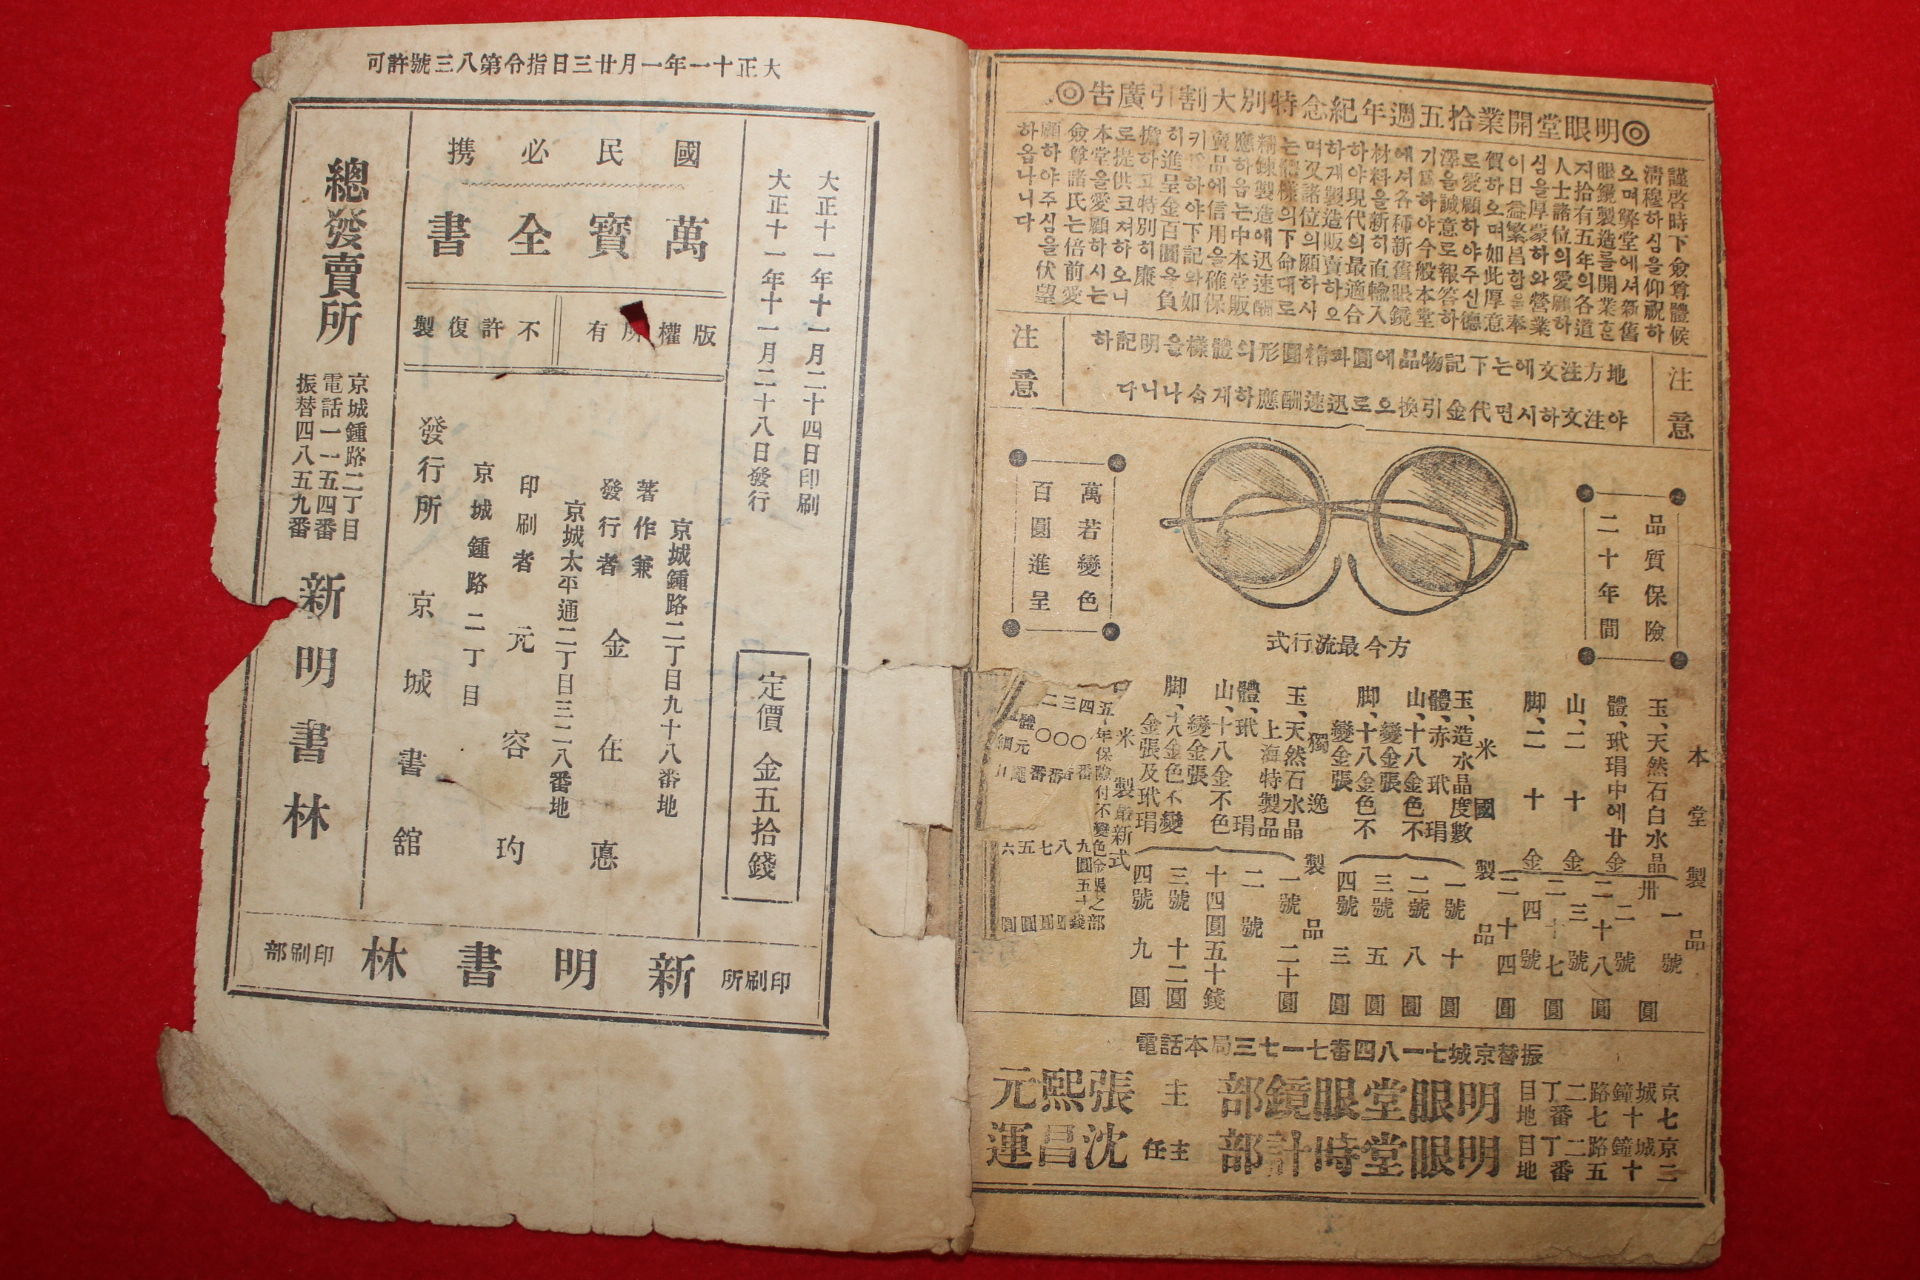 大正十一年一月廿三日指令第八三號許可
大正十一年十一月二十四日印刷
大正十一年十一月二十八日發行
定價 金五拾錢
國民必携
萬寶全書
版權所有
不許復製
京城鍾路二丁目九十八番地
著作兼
發行者 金在悳
京城太平通二丁目三二八番地
印刷者 元容均
京城鍾路二丁目
發行所 京城書舘
總發賣所
京城鍾路二丁目
電話一一五四番
振替四八五九番
新明書林
印刷所 新明書林 印刷部
◎明眼堂開業拾五週年紀念特別大割引廣告◎
謹啓時下僉尊體候
淸穆하심을仰祝하
오며弊堂에셔新舊
眼鏡製造를開業한
지拾有五年의各道
人士諸位의愛顧하
심을厚蒙하와營業
이日益繁昌함을奉
賀하오며如此厚意
로愛顧하야주신德
澤을誠意로報答하
기爲하야今般本堂
에셔各種新舊眼鏡
材料을新히直輸入
하야現代의最適合
하게製造販賣하오
며又諸位의願하시
는他樣의下命대로
精鍊製造에迅速酬
應하옵는中本堂販
賣品에信用을確保
키爲하야下記와如
히進呈金百圜을負
擔하고特別히廉價
로提供코져하오니
本堂을愛顧하시는
僉尊諸氏는倍前愛
顧하야주심을伏望
하옵나니다
注意
地方注文에는下記物品에圓과楕圓形의體樣을明記하
야注文하시면代金引換으로迅速酬應하게슴나니다
注意
品質保險
二十年間
萬若變色
百圓進呈
方今最流行式
本堂製品
玉、天然石白水晶
體、玳瑁中에廿金
山、二十金
脚、二十金
一號 卅圓
二號 二十八圓
三號 二十七圓
四號 二十四圓
米國製品
玉、造水晶度數
體、赤玳瑁
山、十八金色不
變金張
脚、十八金色不
變金張
一號 十圓
二號 八圓
三號 五圓
四號 三圓
獨逸製品
玉、天然石水晶
上海特製品
體、玳瑁
山、十八金不色
變金張
脚、十八金色不變
金張及玳瑁
一號 二十圓
二號 十四圓五十錢
三號 十二圓
四號 九圓
米製最新式
五年保險付不變色金張之部
振替京城七一八四番七一七三局本話電
京城鐘路二丁目
七十七番地
明眼堂眼鏡部 主 張熙元
京城鐘路二丁目
二十五番地
明眼堂時計部 主任 沈昌運